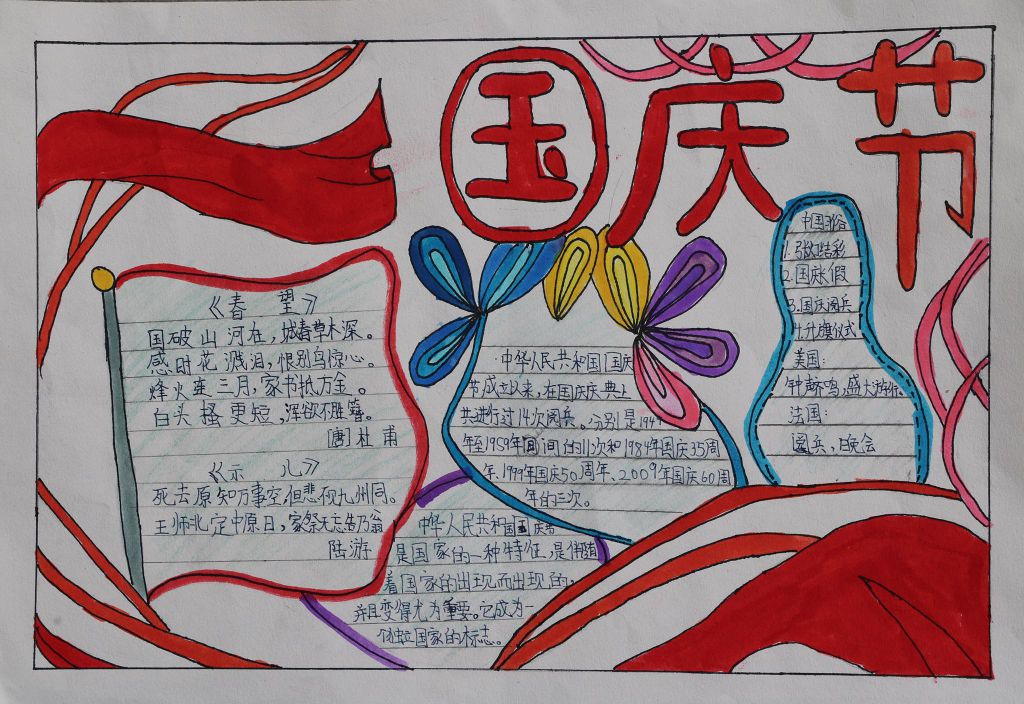 国庆节
《春 望》
国破山河在,城春草木深。
感时花溅泪,恨别鸟惊心。
烽火连三月,家书抵万金。
白头搔更短,浑欲不胜簪。
[唐]杜甫
《示 儿》
死去原知万事空,但悲不见九州同。
王师北定中原日,家祭无忘告乃翁
陆游
·中华人民共和国国庆
节成立以来,在国庆庆典上
共进行过14次阅兵。分别是1949
年至1959年间的11次和1984年国庆35周
年、1999年国庆50周年、2009年国庆60周
年的三次。
中华人民共和国国庆节
是国家的一种特征,是伴随
着国家的出现而出现的,
并且变得尤为重要。它成为一
个独立国家的标志。
中国
1.张灯结彩
2.国庆假
3.国庆阅兵
4.升旗仪式
美国:
钟齐鸣,盛大游行。
法国:
阅兵、晚会